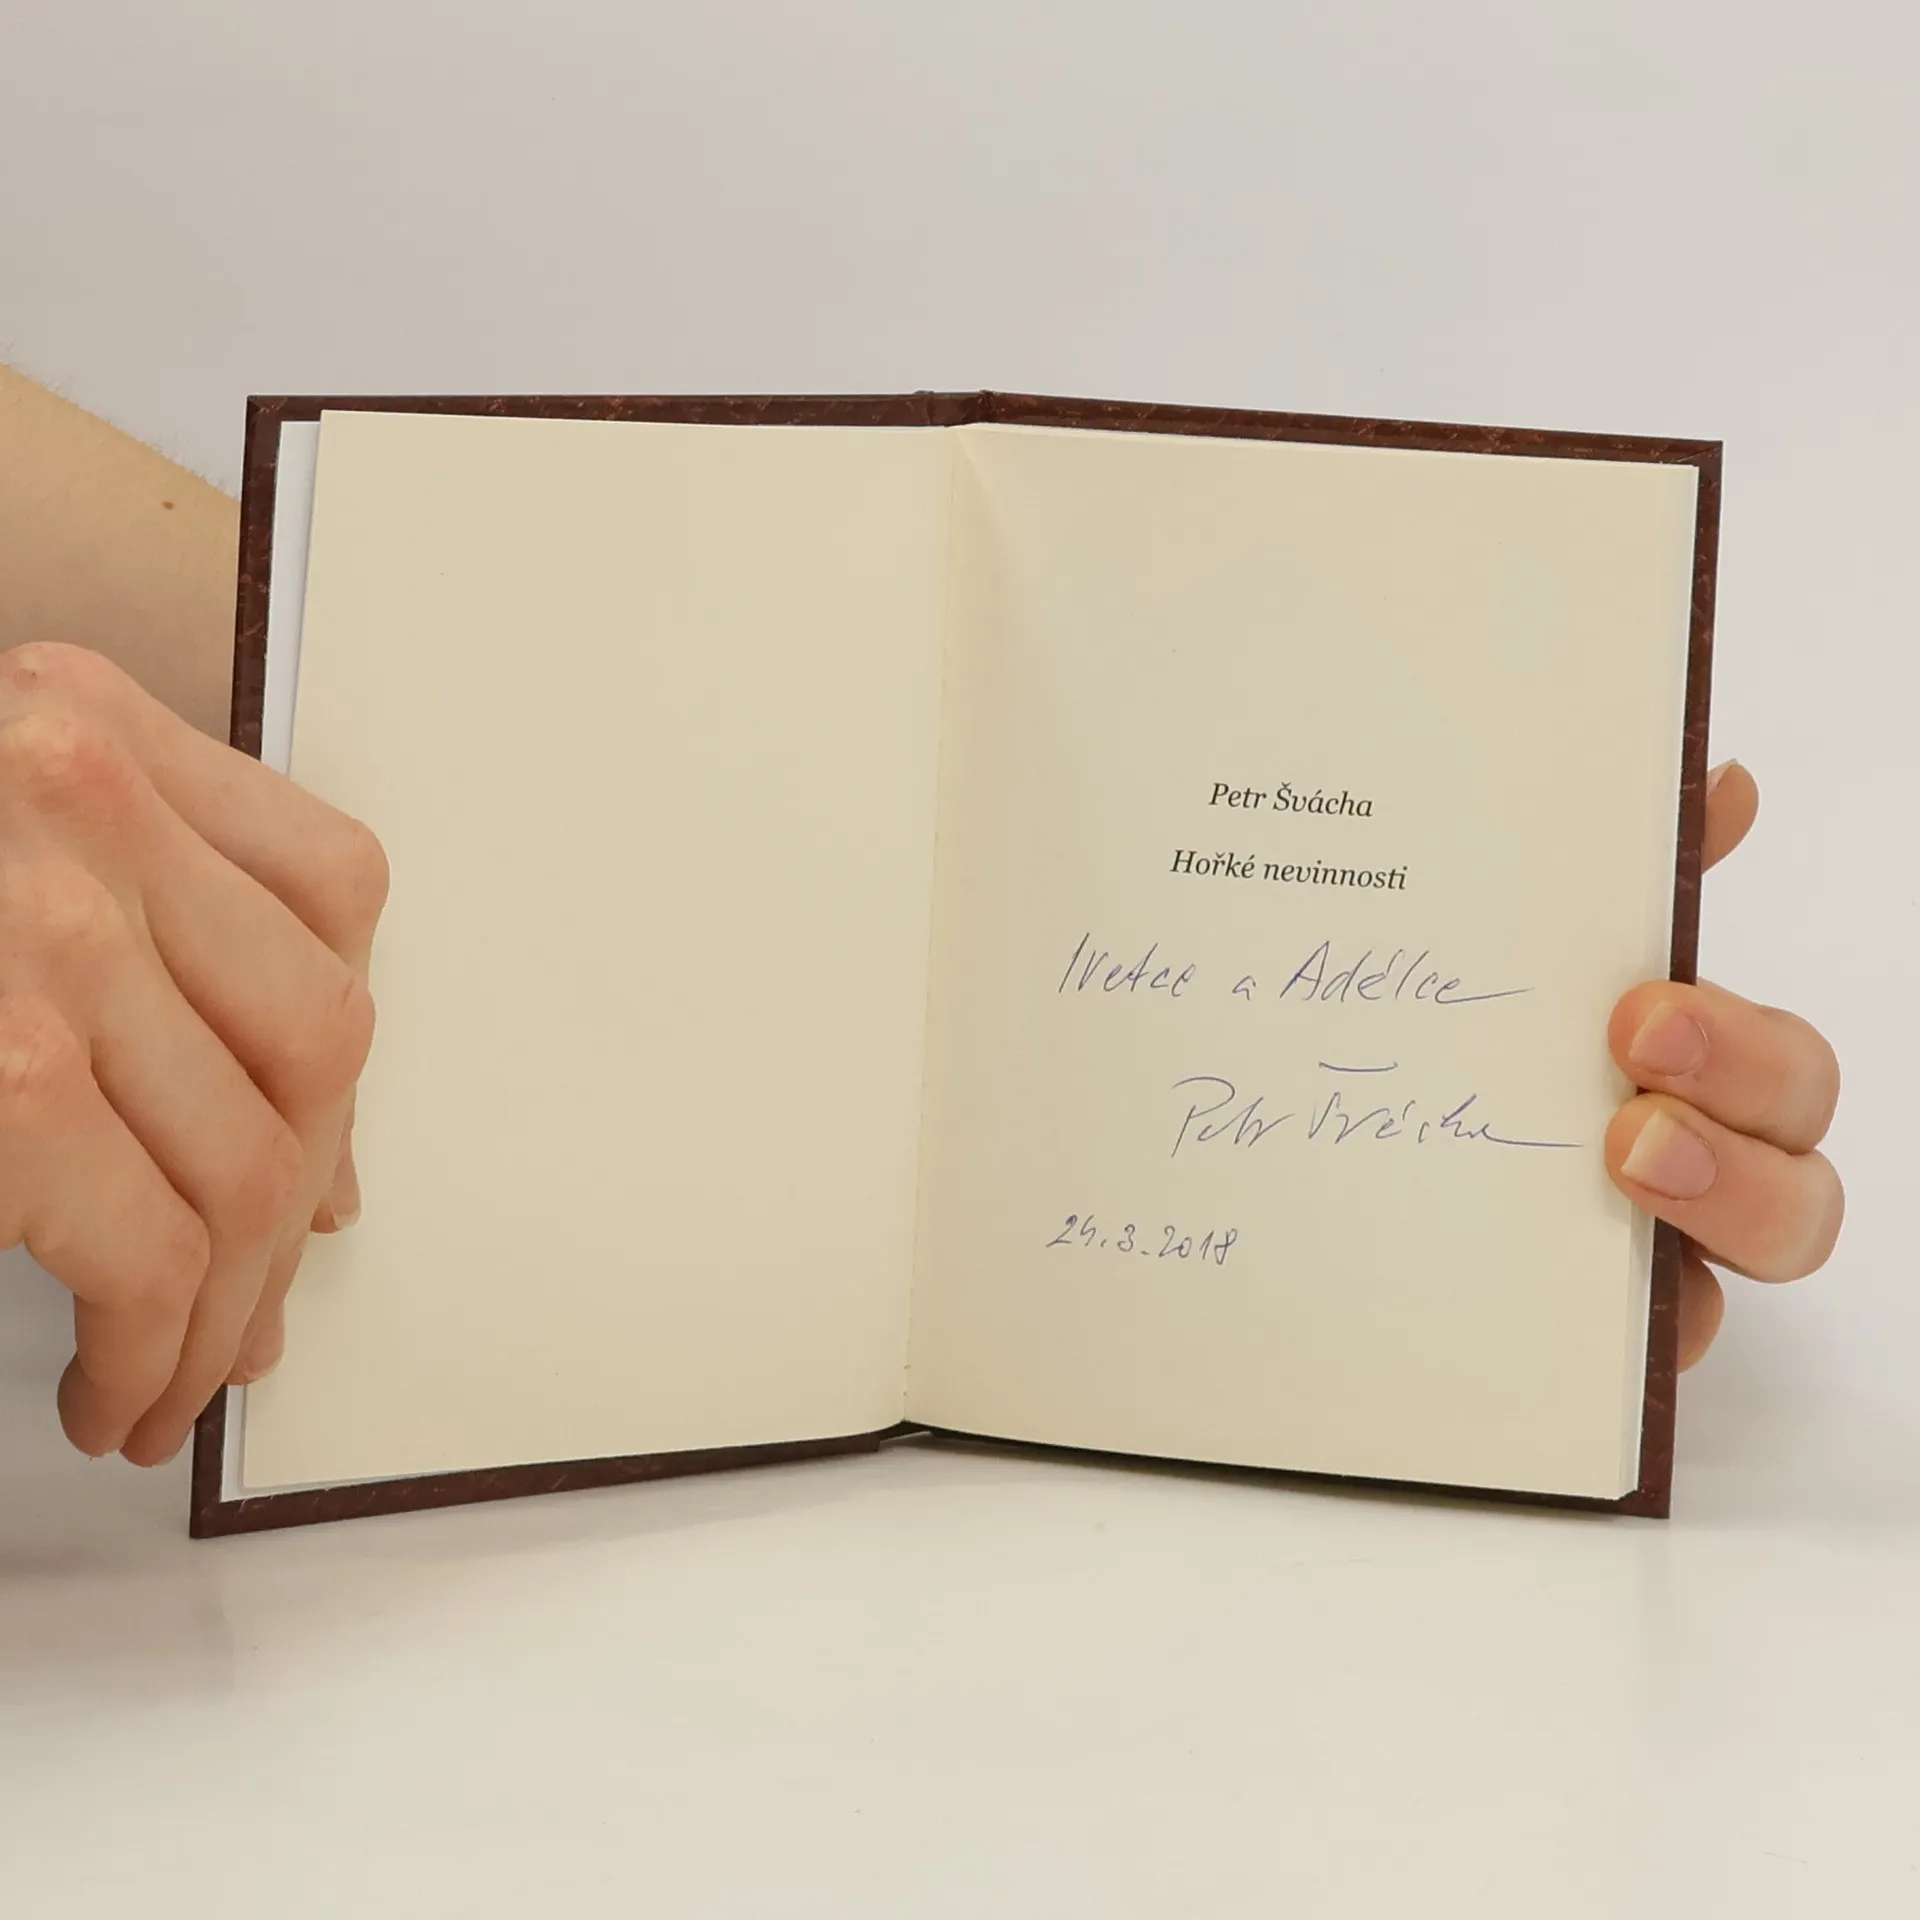 Petr Švácha
Hořké nevinnosti
Ivetce a Adélce
Petr Švácha
24.3.2018